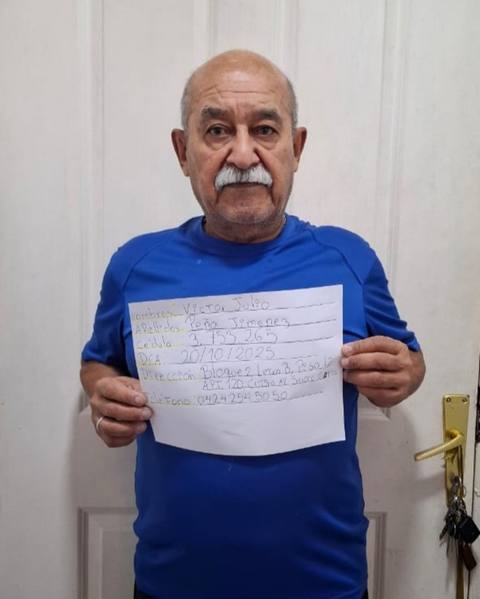 Nombres: Victor Julio
Apellidos: Peña Jimenez
Cédula: 3.155.265
DCA 20/10/2025
Dirección: Bloque 2 Letra B, Piso 12
APT. 120.
Teléfono: 0424 254 50 50